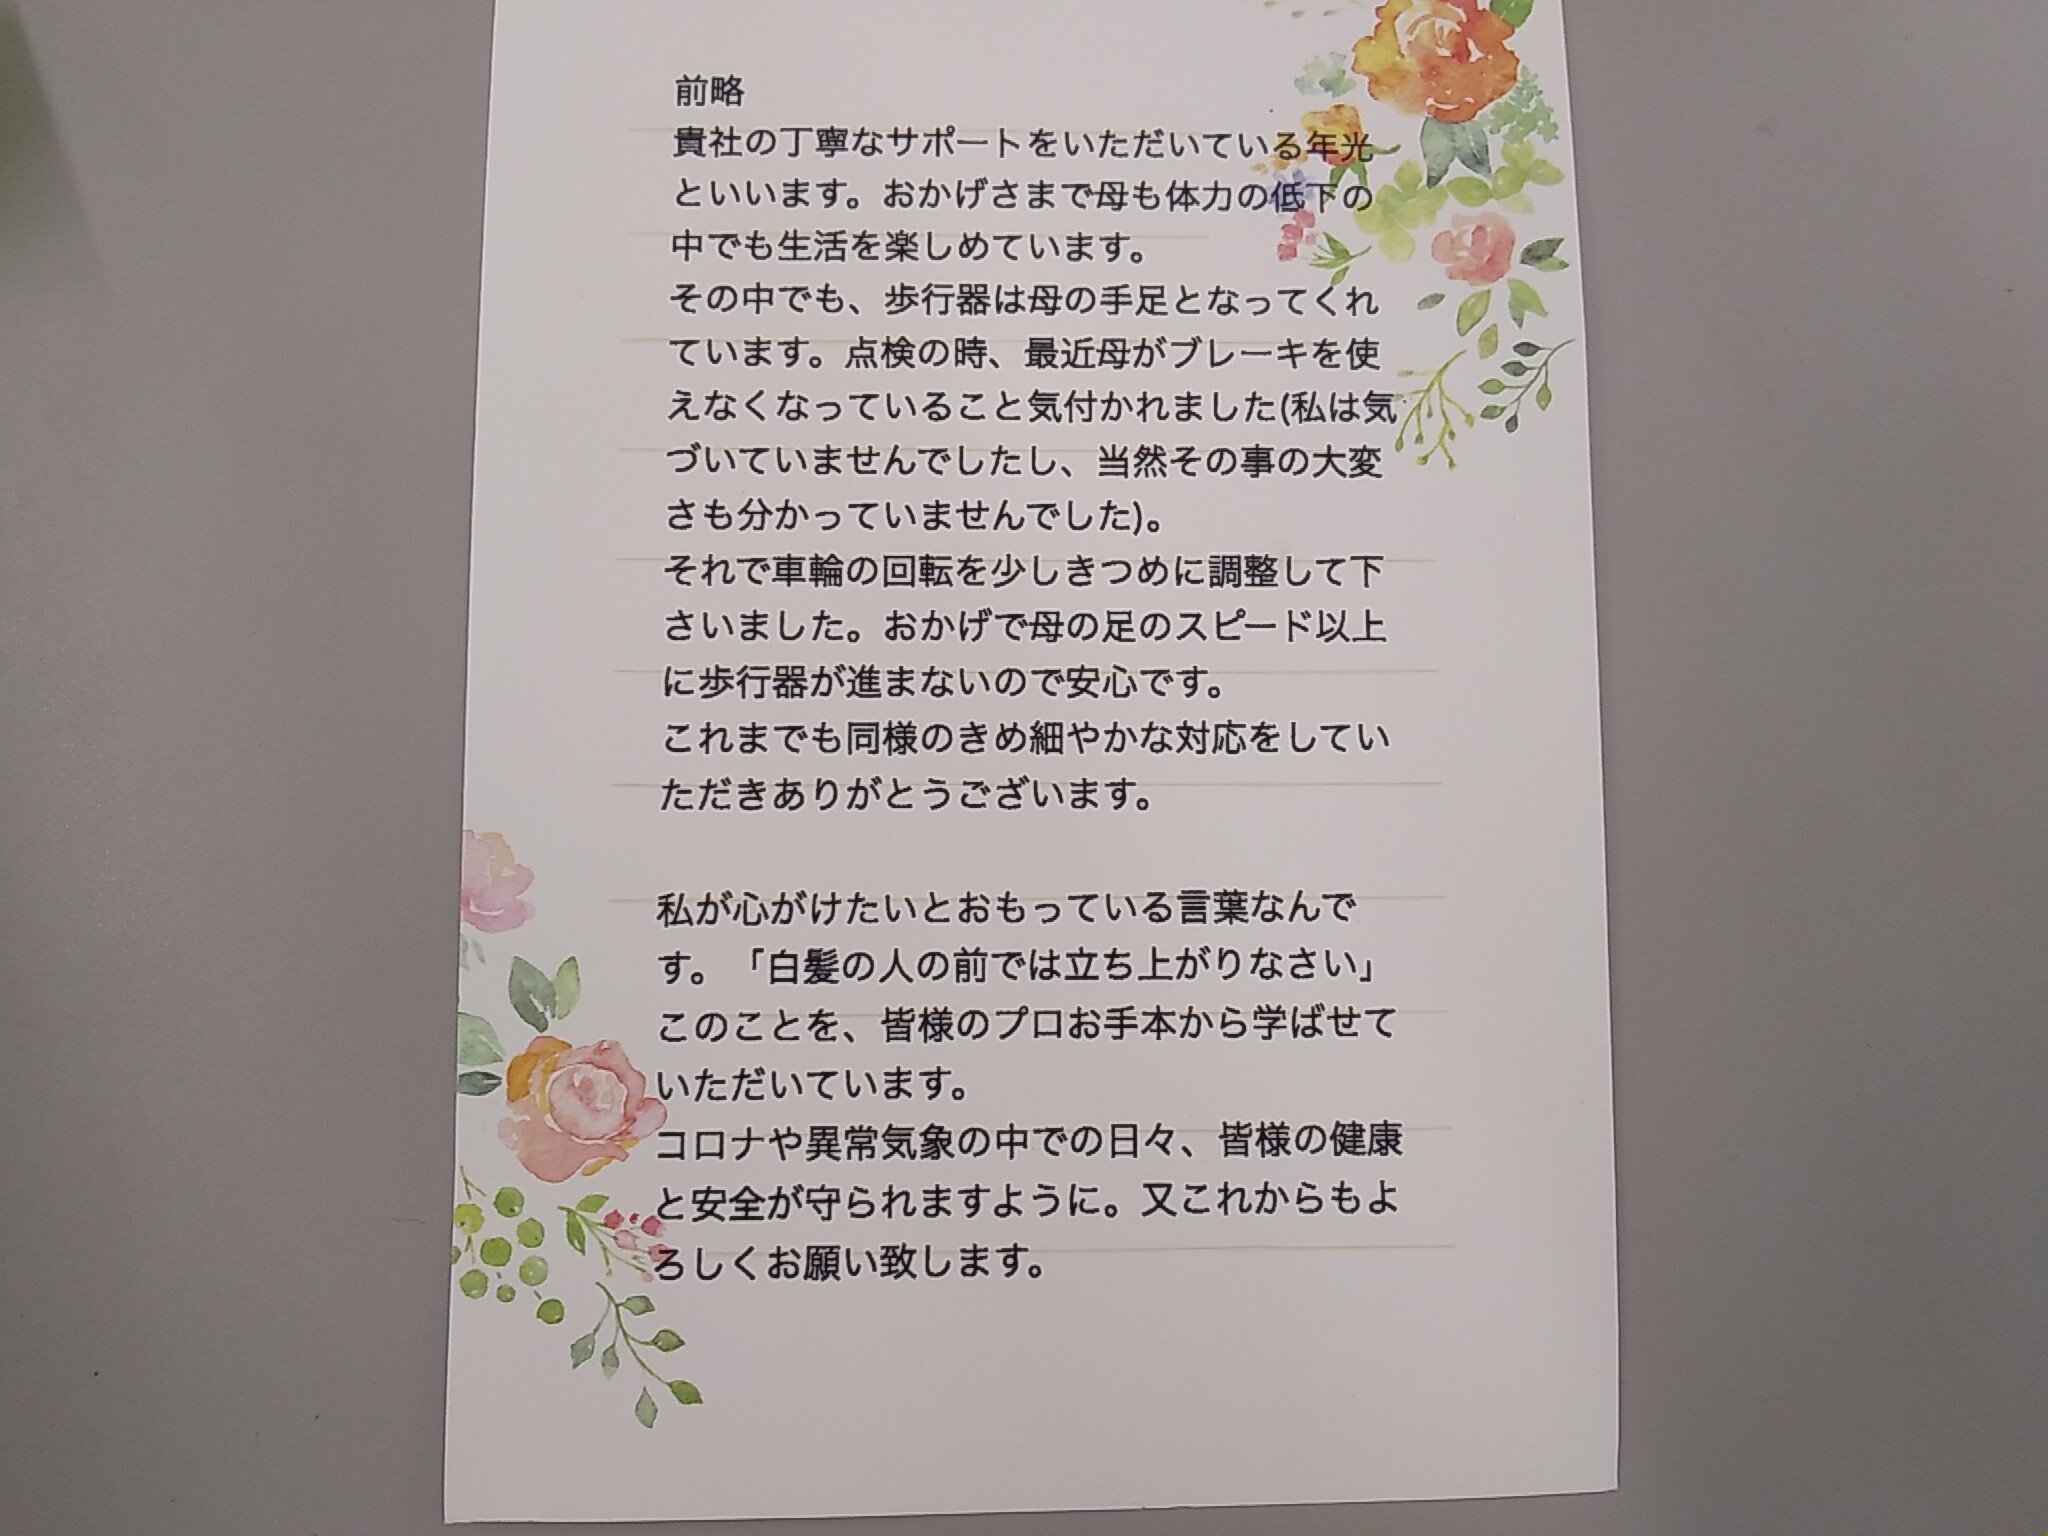 前略
貴社の丁寧なサポートをいただいている年光
といいます。おかげさまで母も体力の低下の
中でも生活を楽しめています。
その中でも、歩行器は母の手足となってくれ
ています。点検の時、最近母がブレーキを使
えなくなっていること気付かれました(私は気
づいていませんでしたし、当然その事の大変
さも分かっていませんでした)。
それで車輪の回転を少しきつめに調整して下
さいました。おかげで母の足のスピード以上
に歩行器が進まないので安心です。
これまでも同様のきめ細やかな対応をしてい
ただきありがとうございます。
私が心がけたいとおもっている言葉なんで
す。「白髪の人の前では立ち上がりなさい」
このことを、皆様のプロお手本から学ばせて
いただいています。
コロナや異常気象の中での日々、皆様の健康
と安全が守られますように。又これからもよ
ろしくお願い致します。